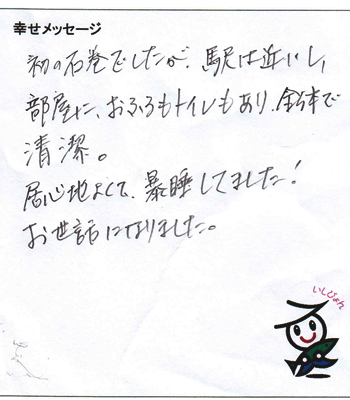 幸せメッセージ
初の石巻でしたが、駅は近いし、
部屋に、おふろもトイレもあり、で
清潔。
居心地よくて、爆睡してました!
お世話になりました。
いしぴょん